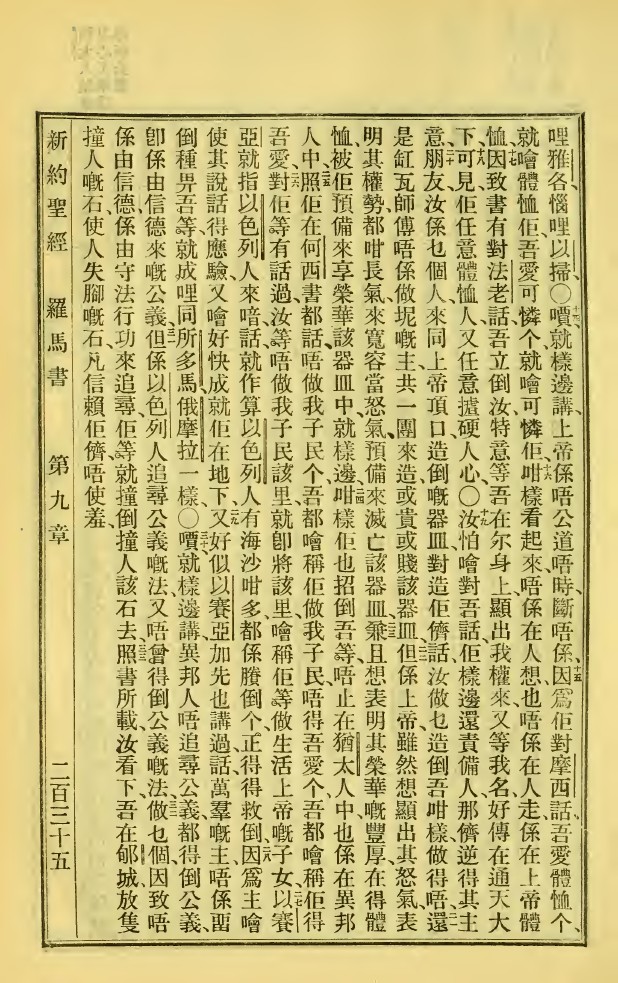 哩、雅各惱哩以掃、○嘪就樣邊講、上帝係唔公道唔時、斷唔係、因爲佢對摩西話、吾愛體恤个、
就噲體恤佢、吾愛可憐个、就噲可憐佢、咁樣看起來、唔係在人想、也唔係在人走、係在上帝體
恤、因致書有對法老話、吾立倒汝、特意等吾在尔身上、顯出我權來、又等我名、好傳在通天大
下、可見佢任意體恤人、又任意𢬿硬人心、○汝怕噲對吾話、佢樣邊還責備人、那儕逆得其主
意、朋友、汝係乜個人、來同上帝頂口、造倒嘅器皿、對造佢儕話、汝做乜造倒吾咁樣、做得唔、還
是缸瓦師傅、唔係做坭嘅主、共一團來造或貴或賤該器皿、但係上帝雖然想顯出其怒氣、表
明其權勢、都咁長氣、來寬容當怒氣、預備來滅亡該器皿、兼且想表明其榮華嘅豐厚、在得體
恤、被佢預備來享榮華該器皿中、就樣邊、咁樣佢也招倒吾等、唔止在猶太人中、也係在異邦
人中、照佢在何西書都話、唔做我子民个、吾都噲稱佢做我子民、唔得吾愛个、吾都噲稱佢得
吾愛、對佢等有話過、汝等唔做我子民該里、就卽將該里、噲稱佢等做生活上帝嘅子女、以賽
亞就指以色列人來喑話、就作算以色列人有海沙咁多、都係賸倒个、正得得救倒、因爲主噲
使其說話得應驗、又噲好快成就佢在地下、又好似以賽亞加先也講過話、萬羣嘅主、唔係畱
倒種畀吾等、就成哩同所多馬俄摩拉一樣、○嘪就樣邊講、異邦人唔追尋公義、都得倒公義、
卽係由信德來嘅公義、但係以色列人追尋公義嘅法、又唔曾得倒公義嘅法、做乜個、因致唔
係由信德、係由守法行功來追尋、佢等就撞倒撞人該石去、照書所載、汝看下、吾在郇城放隻
撞人嘅石、使人失腳嘅石、凡信賴佢儕、唔使羞、
新約聖經　羅馬書　第九章　二百三十五